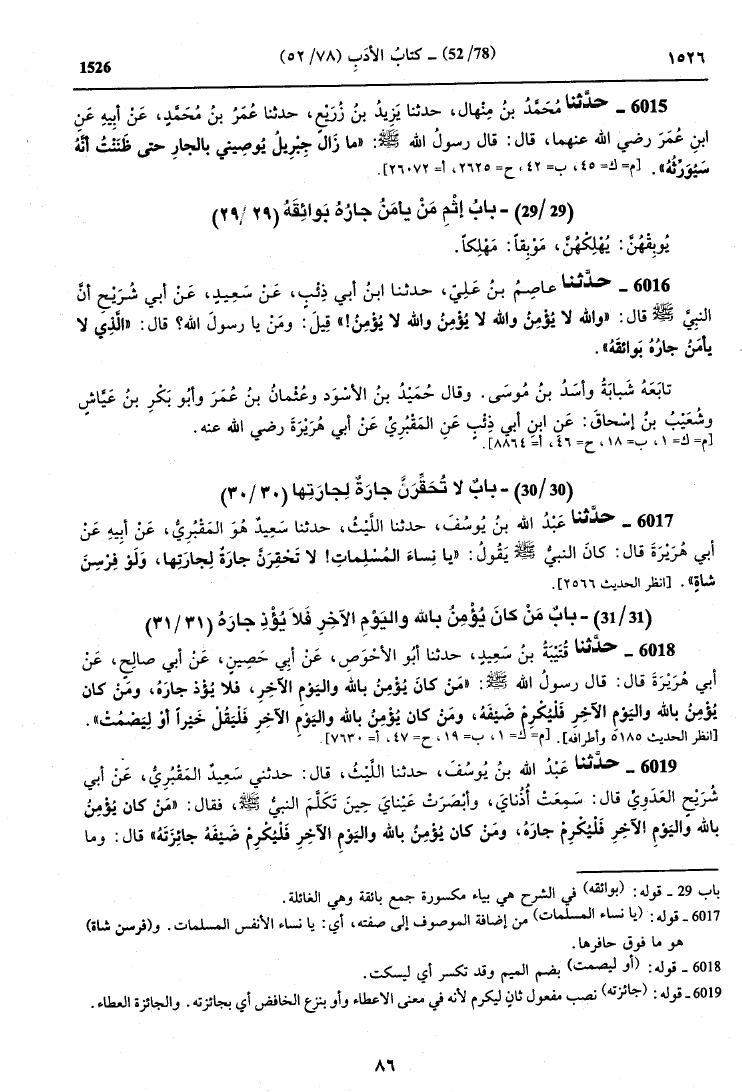 ١٥٢٦ (52/78) ـ كتابُ الأدَبِ (٥٢/٧٨) 1526
6015 ـ حدَّثنا مُحَمَّدُ بنُ مِنْهال، حدثنا يَزِيدُ بنُ زُرَيْعٍ، حدثنا عُمَرُ بنُ مُحَمَّدٍ، عَنْ أبِيهِ عَنِ
ابنِ عُمَرَ رضي الله عنهما، قال: قال رسولُ الله ﷺ: «ما زَالَ جِبْرِيلُ يُوصِيني بالجارِ حتى ظَنَنْتُ أنَّهُ
سَيُوَرِّثُهُ». [م= ك= ٤٥، ب= ٤٢، ح= ٢٦٢٥، أ= ٢٦٠٧٢].
(29/29) - بابُ إثْمِ مَنْ يأمَنُ جارُهُ بَوائِقَهُ (٢٩/٢٩)
يُوبِقْهُنَّ: يُهْلِكْهُنَّ، مَوْبِقاً: مَهْلِكاً.
6016 ـ حدَّثنا عاصِمُ بنُ عَلِيّ، حدثنا ابنُ أبي ذِئْبٍ، عَنْ سَعِيدٍ، عَنْ أبي شُرَيْحٍ أنَّ
النبيَّ ﷺ قال: «والله لا يُؤْمِنُ والله لا يُؤْمِنُ والله لا يُؤْمِنُ!» قِيلَ: ومَنْ يا رسولَ الله؟ قال: «الَّذِي لا
يأمَنُ جارُهُ بَوائقَهُ».
تابَعَهُ شَبابَةُ وأسَدُ بنُ مُوسَى. وقال حُمَيْدُ بنُ الأسْوَدِ وعُثْمانُ بنُ عُمَرَ وأبُو بَكْرِ بنُ عَيَّاشٍ
وشُعَيْبُ بنُ إسْحاقَ: عَنِ ابنِ أبي ذِئْبٍ عَنِ المَقْبُرِيِّ عَنْ أبي هُرَيْرَةَ رضي الله عنه.
[م= ك= ١، ب= ١٨، ح= ٤٦، أ= ٨٨٦٤].
(30/30) - بابٌ لا تُحَقِّرَنَّ جارَةٌ لِجارَتِها (٣٠/٣٠)
6017 ـ حدَّثنا عَبْدُ الله بنُ يُوسُفَ، حدثنا اللَّيْثُ، حدثنا سَعِيدٌ هُوَ المَقْبُرِيُّ، عَنْ أبِيهِ عَنْ
أبي هُرَيْرَةَ قال: كانَ النبيُّ ﷺ يَقُولُ: «يا نِساءَ المُسْلِماتِ! لا تَحْقِرَنَّ جارَةٌ لِجارَتِها، وَلَوْ فِرْسِنَ
شاةٍ». [انظر الحديث ٢٥٦٦].
(31/31) - بابٌ مَنْ كانَ يُؤْمِنُ بالله واليَوْمِ الآخِرِ فَلاَ يُؤْذِ جارَهُ (٣١/٣١)
6018 ـ حدَّثنا قُتَيْبَةُ بنُ سَعِيدٍ، حدثنا أبُو الأحْوَصِ، عَنْ أبي حَصِينٍ، عَنْ أبي صالِحٍ، عَنْ
أبي هُرَيْرَةَ قال: قال رسولُ الله ﷺ: «مَنْ كانَ يُؤْمِنُ بالله واليَوْمِ الآخِرِ، فلا يُؤْذِ جارَهُ، ومَنْ كان
يُؤْمِنُ بالله واليَوْمِ الآخِرِ فَلْيُكْرِمْ ضَيْفَهُ، ومَنْ كان يُؤْمِنُ بالله واليَوْمِ الآخِرِ فَلْيَقُلْ خَيْراً أوْ لِيَصْمُتْ».
[انظر الحديث ٥١٨٥ وأطرافه]. [م= ك= ١، ب= ١٩، ح= ٤٧، أ= ٧٦٣٠].
6019 ـ حدَّثنا عَبْدُ الله بنُ يُوسُفَ، حدثنا اللَّيْثُ، قال: حدثني سَعِيدٌ المَقْبُرِيُّ، عَنْ أبي
شُرَيْحٍ العَدَوِيِّ قال: سَمِعَتْ أُذُنايَ، وأبْصَرَتْ عَيْنايَ حِينَ تَكَلَّمَ النبيُّ ﷺ، فقال: «مَنْ كان يُؤْمِنُ
بالله واليَوْمِ الآخِرِ فَلْيُكْرِمْ جارَهُ، ومَنْ كان يُؤْمِنُ بالله واليَوْمِ الآخِرِ فَلْيُكْرِمْ ضَيْفَهُ جائِزَتَهُ» قال: وما
باب 29 ـ قوله: (بوائقه) في الشرح هي بياء مكسورة جمع بائقة وهي الغائلة.
6017 ـ قوله: (يا نساء المسلمات) من إضافة الموصوف إلى صفته، أي: يا نساء الأنفس المسلمات. و(فرسن شاة)
هو ما فوق حافرها.
6018 ـ قوله: (أو ليصمت) بضم الميم وقد تكسر أي ليسكت.
6019 ـ قوله: (جائزته) نصب مفعول ثانٍ ليكرم لأنه في معنى الاعطاء وأو بنزع الخافض أي بجائزته. والجائزة العطاء.
٨٦